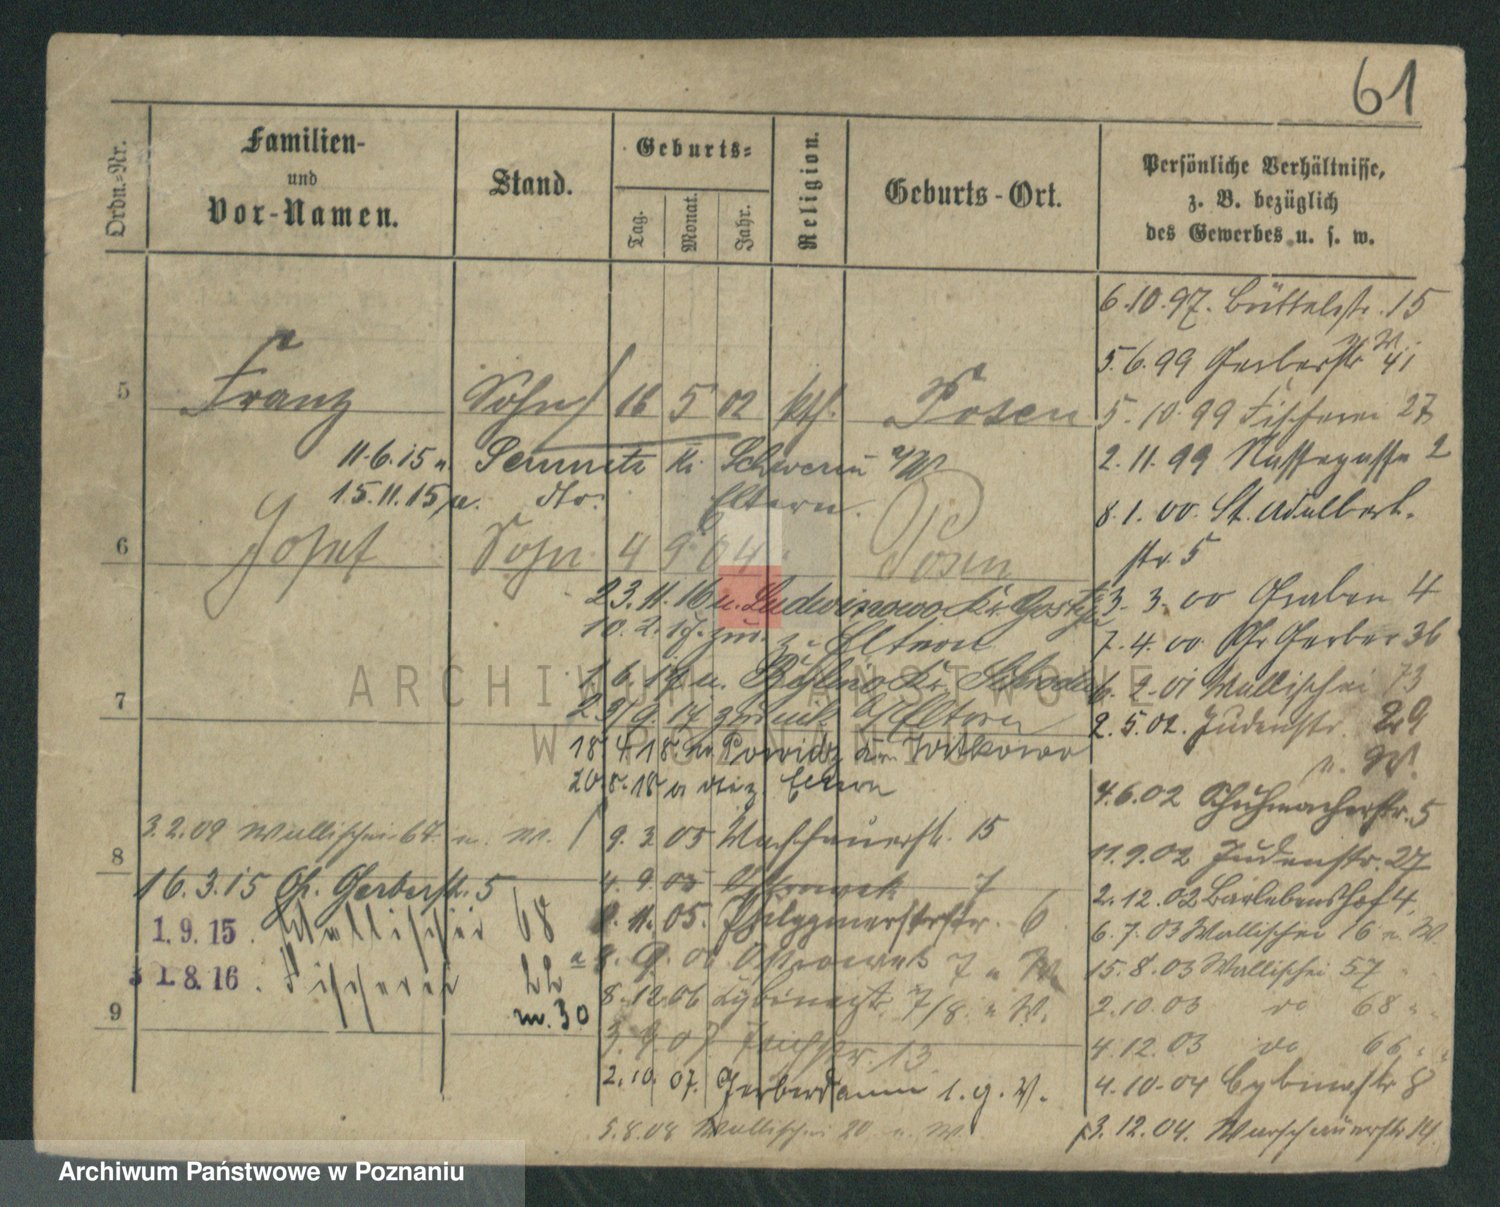 61
Ordn.-Nr.
Familien-
und
Vor-Namen.
Stand.
Geburts-
Tag.
Monat.
Jahr.
Religion.
Geburts-Ort.
Persönliche Verhältnisse,
z. B. bezüglich
des Gewerbes u. s. w.
5
Franz Sohn 16 5 02 kth. Posen
11.6.15 n. Schwerin a/W
15.11.15 Eltern.
6
Josef Sohn 4 9 04 Posen
23.11.16 n. Ludwinowo Kr.
10.2.17. zur. z. Eltern
1.6.17 n. Kr. Schroda
29/9.17 zurück Eltern
7
18.4.18 n. Powidz Kr. Witkowo
20.8.18 Eltern
3.2.09 Wallischei 67 u. W.
8
16.3.15 Gr. Gerberstr. 5
1.9.15. Wallischei 68
31.8.16. Fischerei 22
w. 30
9
9.3.05 15
4.9.05 Ostrowek 7
11.05. 6
Ostrowek 7 u W
8.12.06 Cybinastr. 7/8. u W.
07 13
2.10.07. Gerberdamm 1. g. V.
5.8.08 Wallischei 20 u. W.
6.10.97. Büttelstr. 15
u W.
5.6.99 Gerberstr 41
5.10.99 Fischerei 27
2.11.99 Nassegasse 2
8.1.00. St. Adalbert-
str 5
3.3.00 Graben 4
7.4.00 Gr Gerber 36
2.01 Wallischei 73
2.5.02. Judenstr. 29
u. W.
4.6.02 Schuhmacherstr. 5
11.9.02 Judenstr. 27
2.12.02 Barlebenshof 4,
6.7.03 Wallischei 16 u. W
15.8.03 Wallischei 57
2.10.03 do 68 " "
4.12.03 do 66 " "
4.10.04 Cybinastr 8
3.12.04. Warschauerstr.
ARCHIWUM PAŃSTWOWE
W POZNANIU
Archiwum Państwowe w Poznaniu